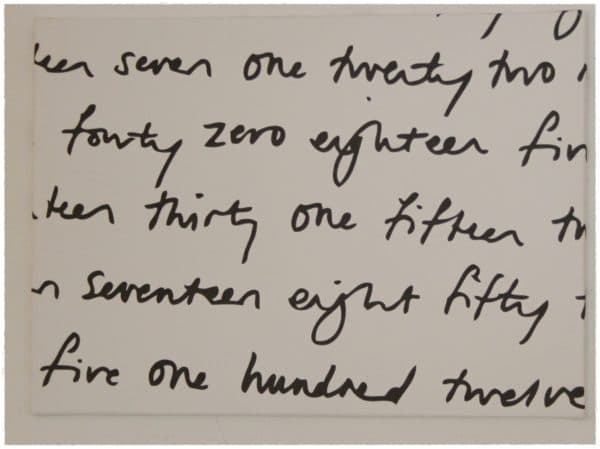 teen seven one twenty two
fourty zero eighteen fiv
teen thirty one fifteen tw
n seventeen eight fifty t
five one hundred twelve